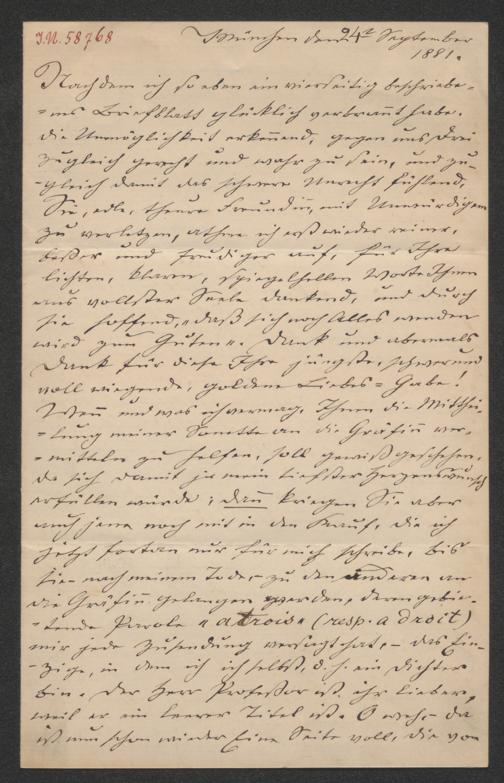 I.N. 58768
München den 24t September
1881.
Nachdem ich so eben ein vierseitig beschriebe-
=nes Briefblatt glücklich vertrant habe,
die Unmöglichkeit erkennend, gegen uns Drei
zugleich gerecht und wahr zu sein, und zu-
-gleich damit das schwere Unrecht fühlend,
Sie, edle, theure Freundin, mit Unwürdigem
zu verletzen, athme ich erst wieder reiner,
besser und freudiger auf, für Ihre
lichten, klaren, spiegelhellen Worte Ihnen
aus vollster Seele dankend, und durch
sie hoffend, "daß sich noch Alles wenden
wird zum Guten". Dank und abermals
Dank für diese Ihre jüngste, schwer und
voll wiegende, goldene Liebes=Gabe!
Wenn und was ich vermag, Ihnen die Mitthei-
=lung meiner Sonette an die Gräfin ver-
=mitteln zu helfen, soll gewiß geschehen,
da sich damit ja mein tiefster Herzenswunsch
erfüllen würde; dann kriegen Sie aber
auch jene noch mit in den Kauf, die ich
jetzt fortan nur für mich schreibe, bis
sie – nach meinem Tode, – zu den anderen an
die Gräfin gelangen werden, deren gebie-
-tende Parole "a trois" (resp. a droit)
mir jede Zusendung versagt hat, – das Ein-
-zige, in dem ich ich selbst, d. h. ein Dichter
bin. Der Herr Professor ist ihr lieber,
weil er ein leerer Titel ist. O weh, – da
ist nun schon wieder Eine Seite voll, die von